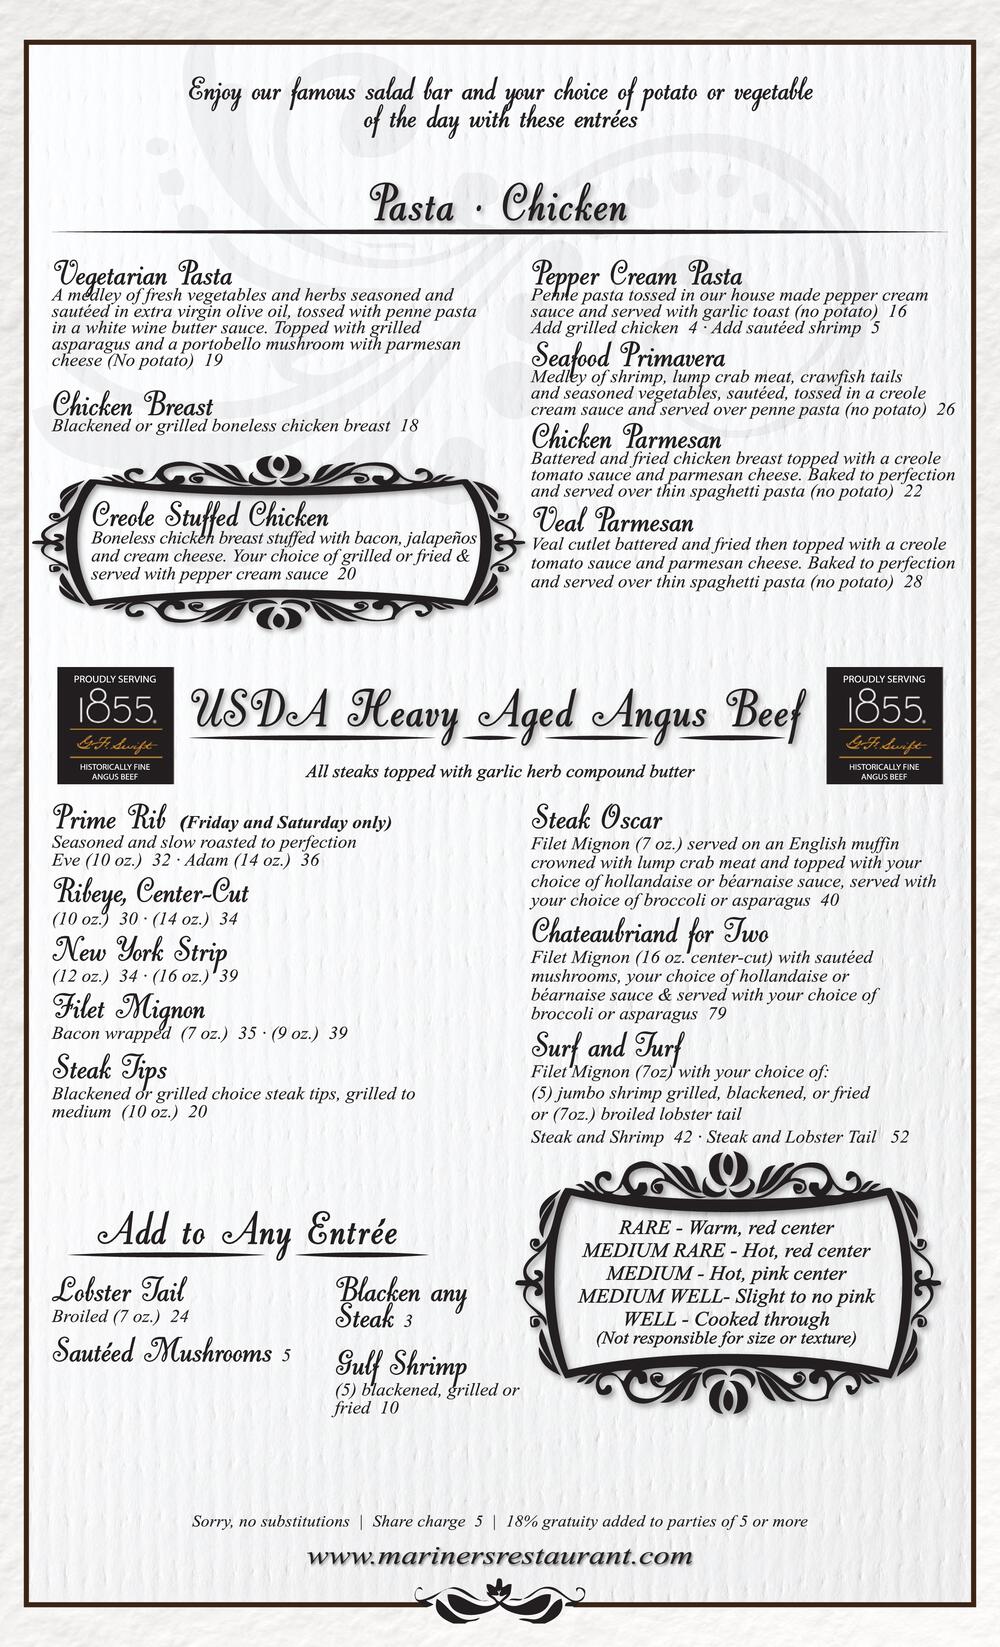 Enjoy our famous salad bar and your choice of potato or vegetable
of the day with these entrées
Pasta · Chicken
Vegetarian Pasta
A medley of fresh vegetables and herbs seasoned and
sautéed in extra virgin olive oil, tossed with penne pasta
in a white wine butter sauce. Topped with grilled
asparagus and a portobello mushroom with parmesan
cheese (No potato) 19
Chicken Breast
Blackened or grilled boneless chicken breast 18
Creole Stuffed Chicken
Boneless chicken breast stuffed with bacon, jalapeños
and cream cheese. Your choice of grilled or fried &
served with pepper cream sauce 20
Pepper Cream Pasta
Penne pasta tossed in our house made pepper cream
sauce and served with garlic toast (no potato) 16
Add grilled chicken 4 · Add sautéed shrimp 5
Seafood Primavera
Medley of shrimp, lump crab meat, crawfish tails
and seasoned vegetables, sautéed, tossed in a creole
cream sauce and served over penne pasta (no potato) 26
Chicken Parmesan
Battered and fried chicken breast topped with a creole
tomato sauce and parmesan cheese. Baked to perfection
and served over thin spaghetti pasta (no potato) 22
Veal Parmesan
Veal cutlet battered and fried then topped with a creole
tomato sauce and parmesan cheese. Baked to perfection
and served over thin spaghetti pasta (no potato) 28
PROUDLY SERVING
1855®
G.F. Swift
HISTORICALLY FINE
ANGUS BEEF
USDA Heavy Aged Angus Beef
All steaks topped with garlic herb compound butter
PROUDLY SERVING
1855®
G.F. Swift
HISTORICALLY FINE
ANGUS BEEF
Prime Rib (Friday and Saturday only)
Seasoned and slow roasted to perfection
Eve (10 oz.) 32 · Adam (14 oz.) 36
Ribeye, Center-Cut
(10 oz.) 30 · (14 oz.) 34
New York Strip
(12 oz.) 34 · (16 oz.) 39
Filet Mignon
Bacon wrapped (7 oz.) 35 · (9 oz.) 39
Steak Tips
Blackened or grilled choice steak tips, grilled to
medium (10 oz.) 20
Steak Oscar
Filet Mignon (7 oz.) served on an English muffin
crowned with lump crab meat and topped with your
choice of hollandaise or béarnaise sauce, served with
your choice of broccoli or asparagus 40
Chateaubriand for Two
Filet Mignon (16 oz. center-cut) with sautéed
mushrooms, your choice of hollandaise or
béarnaise sauce & served with your choice of
broccoli or asparagus 79
Surf and Turf
Filet Mignon (7oz) with your choice of:
(5) jumbo shrimp grilled, blackened, or fried
or (7oz.) broiled lobster tail
Steak and Shrimp 42 · Steak and Lobster Tail 52
Add to Any Entrée
Lobster Tail
Broiled (7 oz.) 24
Sautéed Mushrooms 5
Blacken any
Steak 3
Gulf Shrimp
(5) blackened, grilled or
fried 10
RARE - Warm, red center
MEDIUM RARE - Hot, red center
MEDIUM - Hot, pink center
MEDIUM WELL- Slight to no pink
WELL - Cooked through
(Not responsible for size or texture)
Sorry, no substitutions | Share charge 5 | 18% gratuity added to parties of 5 or more
www.marinersrestaurant.com